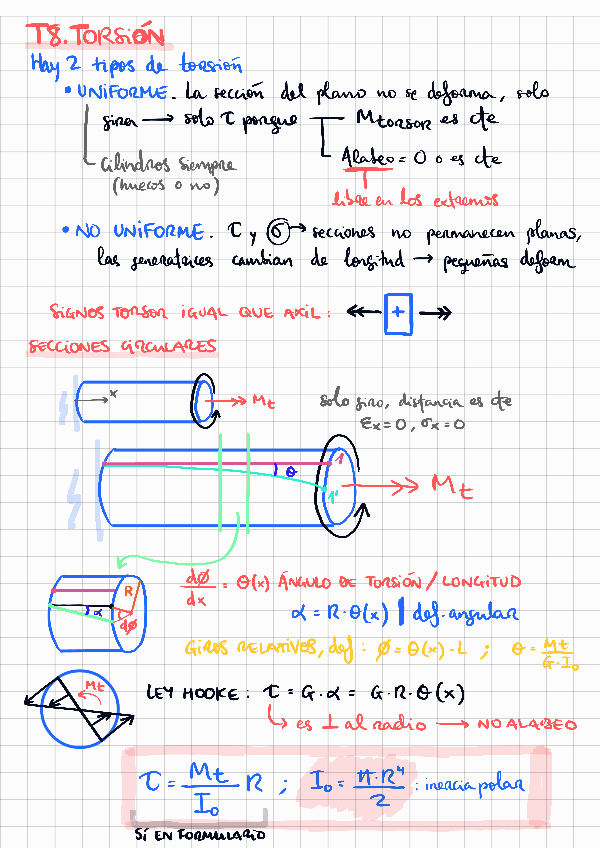 T8. TORSIÓN
Hay 2 tipos de torsión
• UNIFORME. La sección del plano no se deforma, solo
girar → solo τ porque — Mtorsor es cte
Alabeo = 0 o es cte
Cilindros siempre
(huecos o no)
libre en los extremos
• NO UNIFORME. τ y σ → secciones no permanecen planas,
las generatrices cambian de longitud → pequeñas deform
SIGNOS TORSOR IGUAL QUE AXIL: +
SECCIONES CIRCULARES
x
Mt
solo giro, distancia es cte
εx = 0, σx = 0
θ
1
1'
Mt
R
α
dφ
dφ/dx = θ(x) ÁNGULO DE TORSIÓN / LONGITUD
α = R·θ(x) | def. angular
GIROS RELATIVOS, def: φ = θ(x)·L ; θ = Mt/G·I₀
Mt
LEY HOOKE: τ = G·α = G·R·θ(x)
↳ es ⊥ al radio → NO ALABEO
τ = Mt/I₀ R ; I₀ = π·R⁴/2 : inercia polar
SÍ EN FORMULARIO